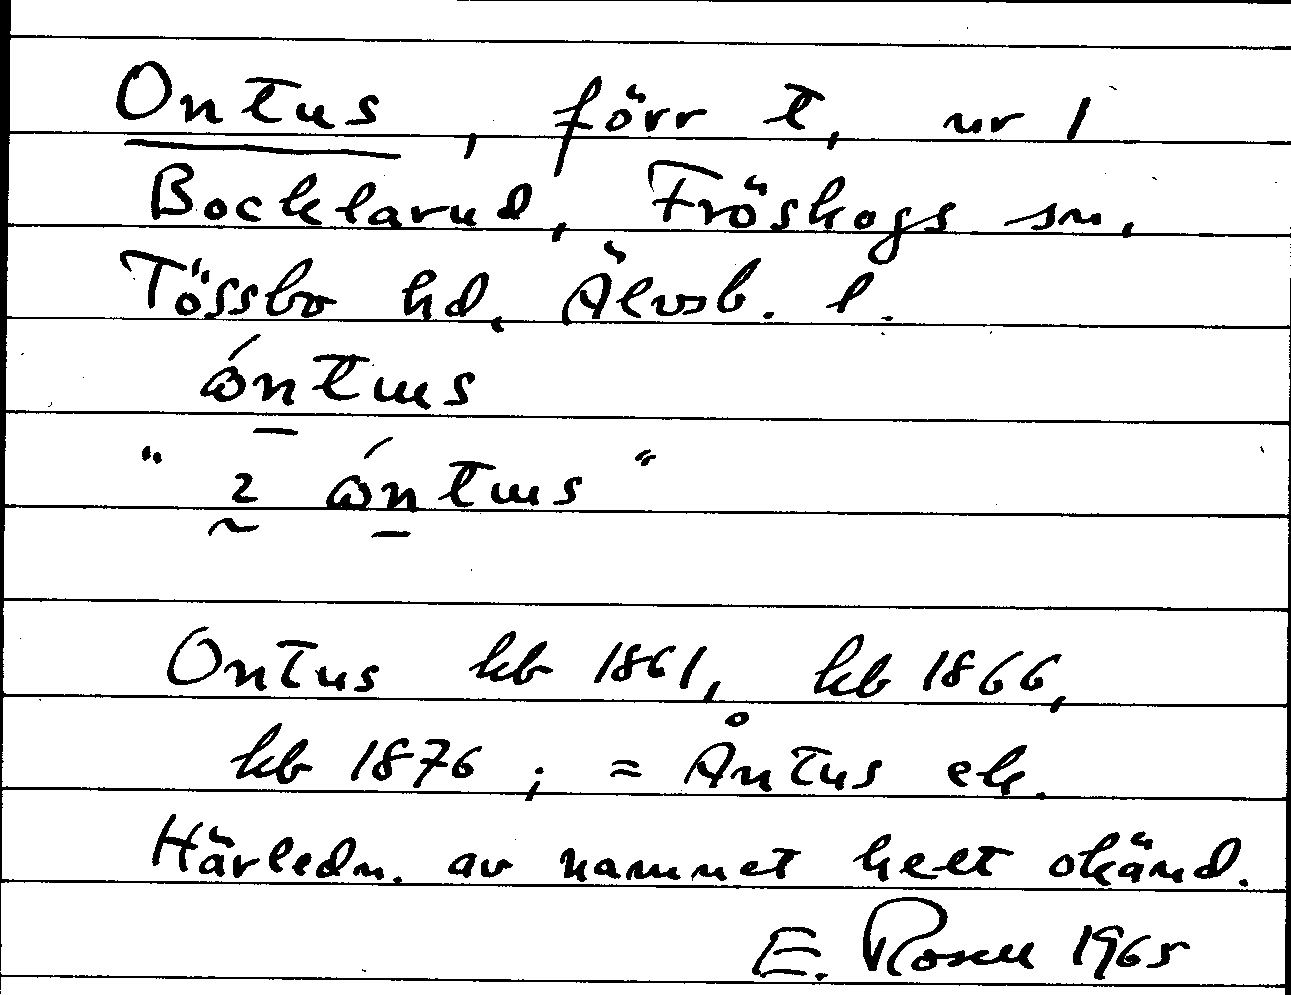 Ontus, förr t, nr 1
Bocklarud, Fröskogs sn,
Tössbo hd, Älvsb. l.
ώntɯs
" 2 ώntɯs "
Ontus kb 1861, kb 1866,
kb 1876; = Åntus ek.
Härledn. av namnet helt okänd.
E. Rosell 1965